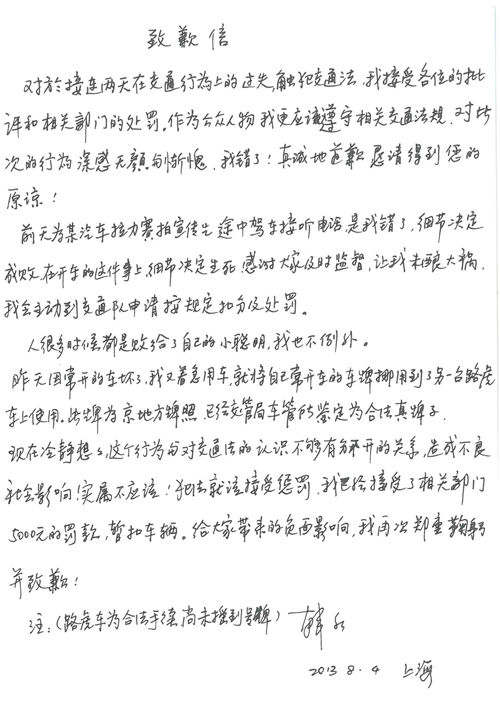 致歉信
对於接连两天在交通行为上的过失,触犯交通法,我接受各位的批
评和相关部门的处罚。作为公众人物我更应该遵守相关交通法规,对此
次的行为深感无颜和惭愧,我错了!真诚地道歉恳请得到您的
原谅!
前天为某汽车拉力赛拍宣传片途中驾车接听电话,是我错了,细节决定
成败,在开车的这件事上,细节决定生死,感谢大家及时监督,让我未酿大祸,
我会主动到交通队申请按规定扣分及处罚。
人很多时候都是败给了自己的小聪明,我也不例外。
昨天因常开的车坏了,我又着急用车,就将自己常开车的车牌挪用到了另一台路虎
车上使用。此牌为京地方牌照,已经交管局车管所鉴定为合法真牌子.
现在冷静想想,这个行为与对交通法的认识不够有分不开的关系,造成不良
社会影响!实属不应该!犯法就该接受惩罚,我已经接受了相关部门
5000元的罚款,暂扣车辆。给大家带来的负面影响,我再次郑重鞠躬
并致歉!
注:(路虎车为合法手续,尚未摇到号牌) 韩
2013 8. 4 上海